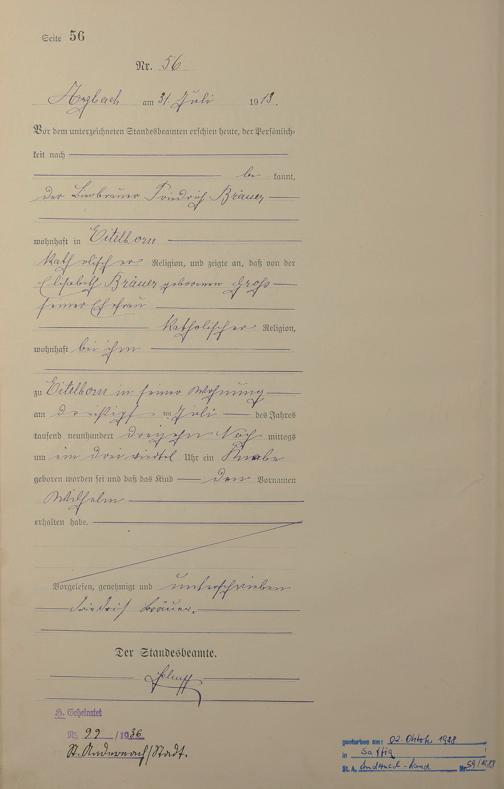 Seite 56
Nr. 56
Arzbach am 31. Juli 1913.
Vor dem unterzeichneten Standesbeamten erschien heute, der Persönlich-
keit nach
be kannt,
der Friedrich Bräuer
wohnhaft in Eitelborn
katholischer Religion, und zeigte an, daß von der
Elisabeth Bräuer geborenen Groß
seiner Ehefrau
katholischer Religion,
wohnhaft bei ihm
zu Eitelborn in seiner Wohnung
am Juli des Jahres
tausend neunhundert dreizehn Nach mittags
um ein drei viertel Uhr ein Knabe
geboren worden sei und daß das Kind den Vornamen
Wilhelm
erhalten habe.
Vorgelesen, genehmigt und unterschrieben
Friedrich Bräuer.
Der Standesbeamte.
H. Geheiratet
Nr. 99 /1936
St. Andernach/Stadt.
gestorben am: 02. Oktober 1988
in Saffig
St. A. Andernach-Land Nr.